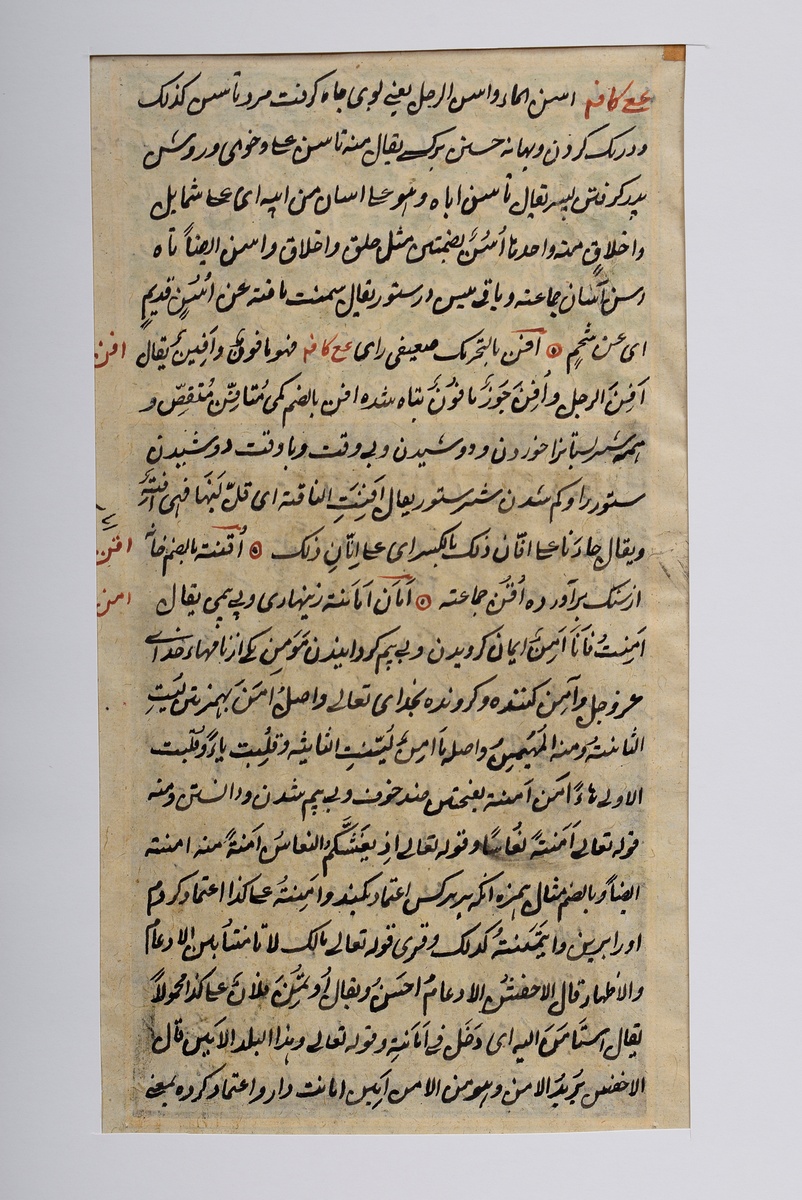 اسن الماء واسن الرجل یعنی بوی چاه کرفت مرد تأسن کذلک
ودرنک کردن وبهانه جستن یقال منه تأسن علی وخوی وروش
پدر کرفتن پسر یقال تأسن اباه وهو علی اسان من ابیه ای علی شمایل
واخلاق منه واحدها اُسُنٌ بضمتین مثل خلق واخلاق واسن ایضاً تاه
رسن آسان جماعته وباقی پیس در ستور یقال سمنت ناقته عن اُسُنٍ قدیمٍ
ای عن شحمٍ ۞ افن بالتحریک ضعیفی رای مع کافه فهو مافونٌ وافینٌ یقال افن
اَفِنَ الرجل واُفِنَ جَوزٌ مافونٌ تباه شده افن بالضم کمی مُتافِّن مُتنقصّ و
همه شیر پستانرا خوردن ودوشیدن وبی وقت وبا وقت دوشیدن
ستور را وکم شدن شیر ستور یقال اَفِنَتِ الناقة ای قلّ لَبَنُها فهی اَفِنَةٌ
ویقال جاءنا علی افّان ذلک بالکسر ای علی اِبّانِ ذلک ۞ اُقنة بالضم خانه اقن
از سنک برآورده اُقَنٌ جماعته ۞ اَمان اَمانة زینهاری وبی بیمی یقال امن
اَمِنتُ فانا آمِنٌ ایمان کرویدن وبی بیم کردانیدن مؤمن یکی از نامهاء خدای
عزوجل وآمن کننده وکرونده بخدای تعالی واصل اٰمَنَ بهمزتین لُیّنتِ
الثانیة ومنه المهیمن واصله مأامِنٌ لُیّنتِ الثانیة وقُلِبت یاءً وقُلِبت
الاولی هاءً امن اَمنة بفتحتین ضد خوف وبی بیم شدن ودانستن ومنه
قوله تعالی اَمَنَةً نُعاساً وقوله تعالی اِذ یَغشّیکم النعاسُ اَمَنةً منه امنة
ایضاً وبالضم مثال همزه آنکه بر هرکس اعتماد کند واَمِنتُه علی کذا اعتماد کردم
او را برین وایتمنتهُ کذلک وقری قوله تعالی مالک لا تأمنّا بین الادغام
والاظهار قال الاخفش الادغام احسن ویقال اُوتُمِنَ فلانٌ علی کذا مجهولاً
یقال استأمَنَ الیه ای دَخَل فی اَمانِه وقوله تعالی وهذا البلد الامین قال
الاخفش یرید الامن وهو من الامن امین امانت دار واعتماد کرده بمعنی